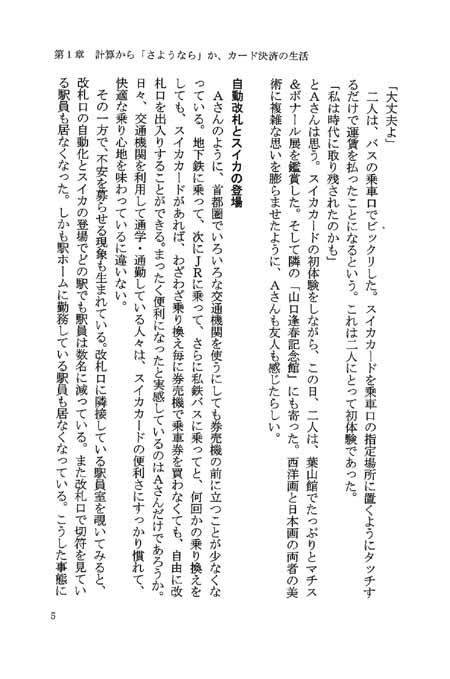 第1章　計算から「さようなら」か、カード決済の生活
「大丈夫よ」
　二人は、バスの乗車口でビックリした。スイカカードを乗車口の指定場所に置くようにタッチす
るだけで運賃を払ったことになるという。これは二人にとって初体験であった。
「私は時代に取り残されたのかも」
とＡさんは思う。スイカカードの初体験をしながら、この日、二人は、葉山館でたっぷりとマチス
＆ボナール展を鑑賞した。そして隣の「山口蓬春記念館」にも寄った。西洋画と日本画の両者の美
術に複雑な思いを膨らませたように、Ａさんも友人も感じたらしい。
自動改札とスイカの登場
　Ａさんのように、首都圏でいろいろな交通機関を使うにしても券売機の前に立つことが少なくな
っている。地下鉄に乗って、次にＪＲに乗って、さらに私鉄バスに乗ってと、何回かの乗り換えを
しても、スイカカードがあれば、わざわざ乗り換え毎に券売機で乗車券を買わなくても、自由に改
札口を出入りすることができる。まったく便利になったと実感しているのはＡさんだけであろうか。
日々、交通機関を利用して通学・通勤している人々は、スイカカードの便利さにすっかり慣れて、
快適な乗り心地を味わっているに違いない。
　その一方で、不安を募らせる現象も生まれている。改札口に隣接している駅員室を覗いてみると、
改札口の自動化とスイカの登場でどの駅でも駅員は数名に減っている。また改札口で切符を見てい
る駅員も居なくなった。しかも駅ホームに勤務している駅員も居なくなっている。こうした事態に
5